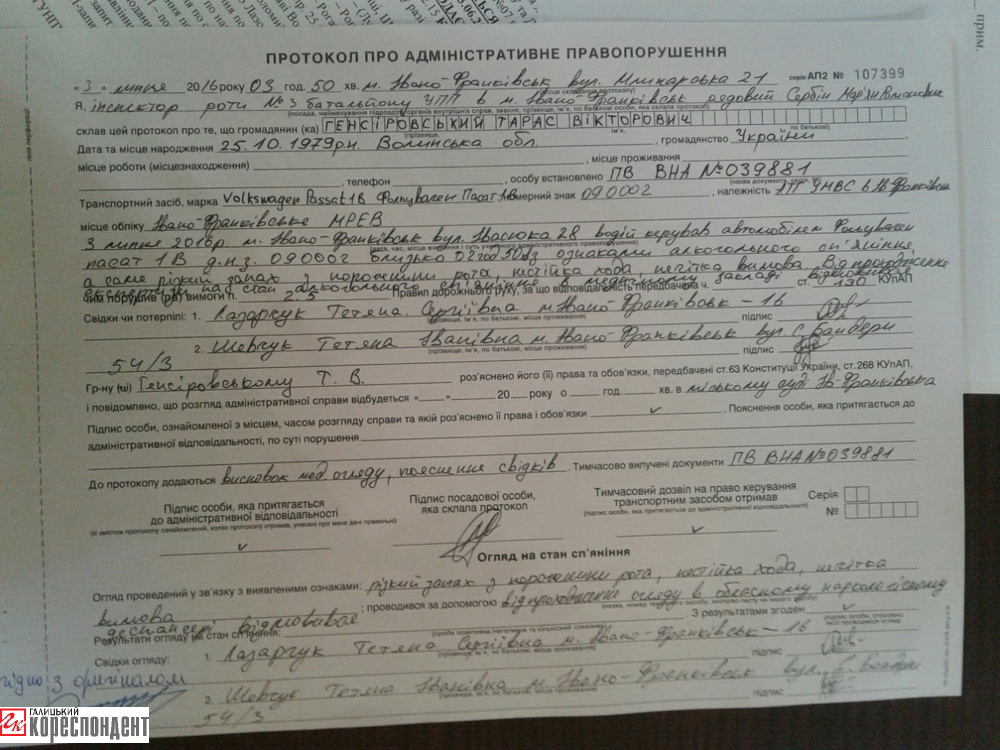 ПРОТОКОЛ ПРО АДМІНІСТРАТИВНЕ ПРАВОПОРУШЕННЯ
« 3 » липня 2016 року 03 год. 50 хв. м. Івано-Франківськ вул. Млинарська 21 серія АП2 № 107399
Я, інспектор роти №3 батальйону УПП в м. Івано-Франківськ рядовий Сербін Мар'ян Романович
(посада, найменування підрозділу органів внутрішніх справ, звання, прізвище, ім'я, по батькові особи, яка склала протокол)
склав цей протокол про те, що громадянин (ка) ГЕНСІРОВСЬКИЙ ТАРАС ВІКТОРОВИЧ
(прізвище, ім'я, по батькові)
Дата та місце народження 25.10.1979рн. Волинська обл. , громадянство України
місце роботи (місцезнаходження) , місце проживання
, телефон , особу встановлено ПВ ВНА №039881
Транспортний засіб, марка Volkswagen Passat 1B Фольцваген Пасат 1В номерний знак 090002 , належність УМВС в Ів Франківськ
місце обліку Івано-Франківське МРЕВ
3 липня 2016р. м. Івано-Франківськ вул. 28 водій керував автомобілем Фольцваген
(дата, час, місце вчинення і суть адміністративного правопорушення)
пасат 1В д.н.з. 090002 близько 02 год 50хв з ознаками алкогольного сп'яніння,
а саме різкий запах з порожнини рота, нестійка хода, нечітка вимова. Від проходження
на стан алкогольного сп'яніння в закладі відмовився
чим порушив (ра) вимоги п. 2.5 Правил дорожнього руху, за що відповідальність передбачена ч. ст. 130 КУпАП
Свідки чи потерпілі: 1. Лазарчук Тетяна Сергіївна м. Івано-Франківськ - 16 підпис
(прізвище, ім'я, по батькові, місце проживання)
2. Шевчук Тетяна Іванівна м. Івано-Франківськ вул. С. Бандери
54/3 (прізвище, ім'я, по батькові, місце проживання) підпис
Гр-ну (ці) Генсіровському Т. В. роз'яснено його (її) права та обов'язки, передбачені ст.63 Конституції України, ст.268 КУпАП,
і повідомлено, що розгляд адміністративної справи відбудеться «___»______ 20___ року о ___год.___ хв. в міському суді Ів-Франківська
Підпис особи, ознайомленої з місцем, часом розгляду справи та якій роз'яснено її права і обов'язки v . Пояснення особи, яка притягається до
адміністративної відповідальності, по суті порушення
До протоколу додаються висновок мед огляду, пояснення свідків . Тимчасово вилучені документи ПВ ВНА №039881
Підпис особи, яка притягається
до адміністративної відповідальності
(зі змістом протоколу ознайомлений, копію протоколу отримав, унесені про мене дані правильні)
v
Підпис посадової особи,
яка склала протокол
Тимчасовий дозвіл на право керування
транспортним засобом отримав
(підпис особи, яка притягається до адміністративної відповідальності)
v
Серія
№
Огляд на стан сп'яніння
Огляд проведений у зв'язку з виявленими ознаками: різкий запах з порожнини рота, нестійка хода, нечітка
вимова ; проводився за допомогою від проходження огляду в обласному наркологічному
диспансері відмовився
Результати огляду на стан сп'яніння: . З результами згоден v
Свідки огляду: 1. Лазарчук Тетяна Сергіївна м. Івано-Франківськ - 16 підпис
(прізвище, ім'я, по батькові, місце проживання)
2. Шевчук Тетяна Іванівна м. Івано-Франківськ вул. С. Бандери
54/3 підпис
згідно з оригіналом
ГК ГАЛИЦЬКИЙ
КОРЕСПОНДЕНТ
прим.